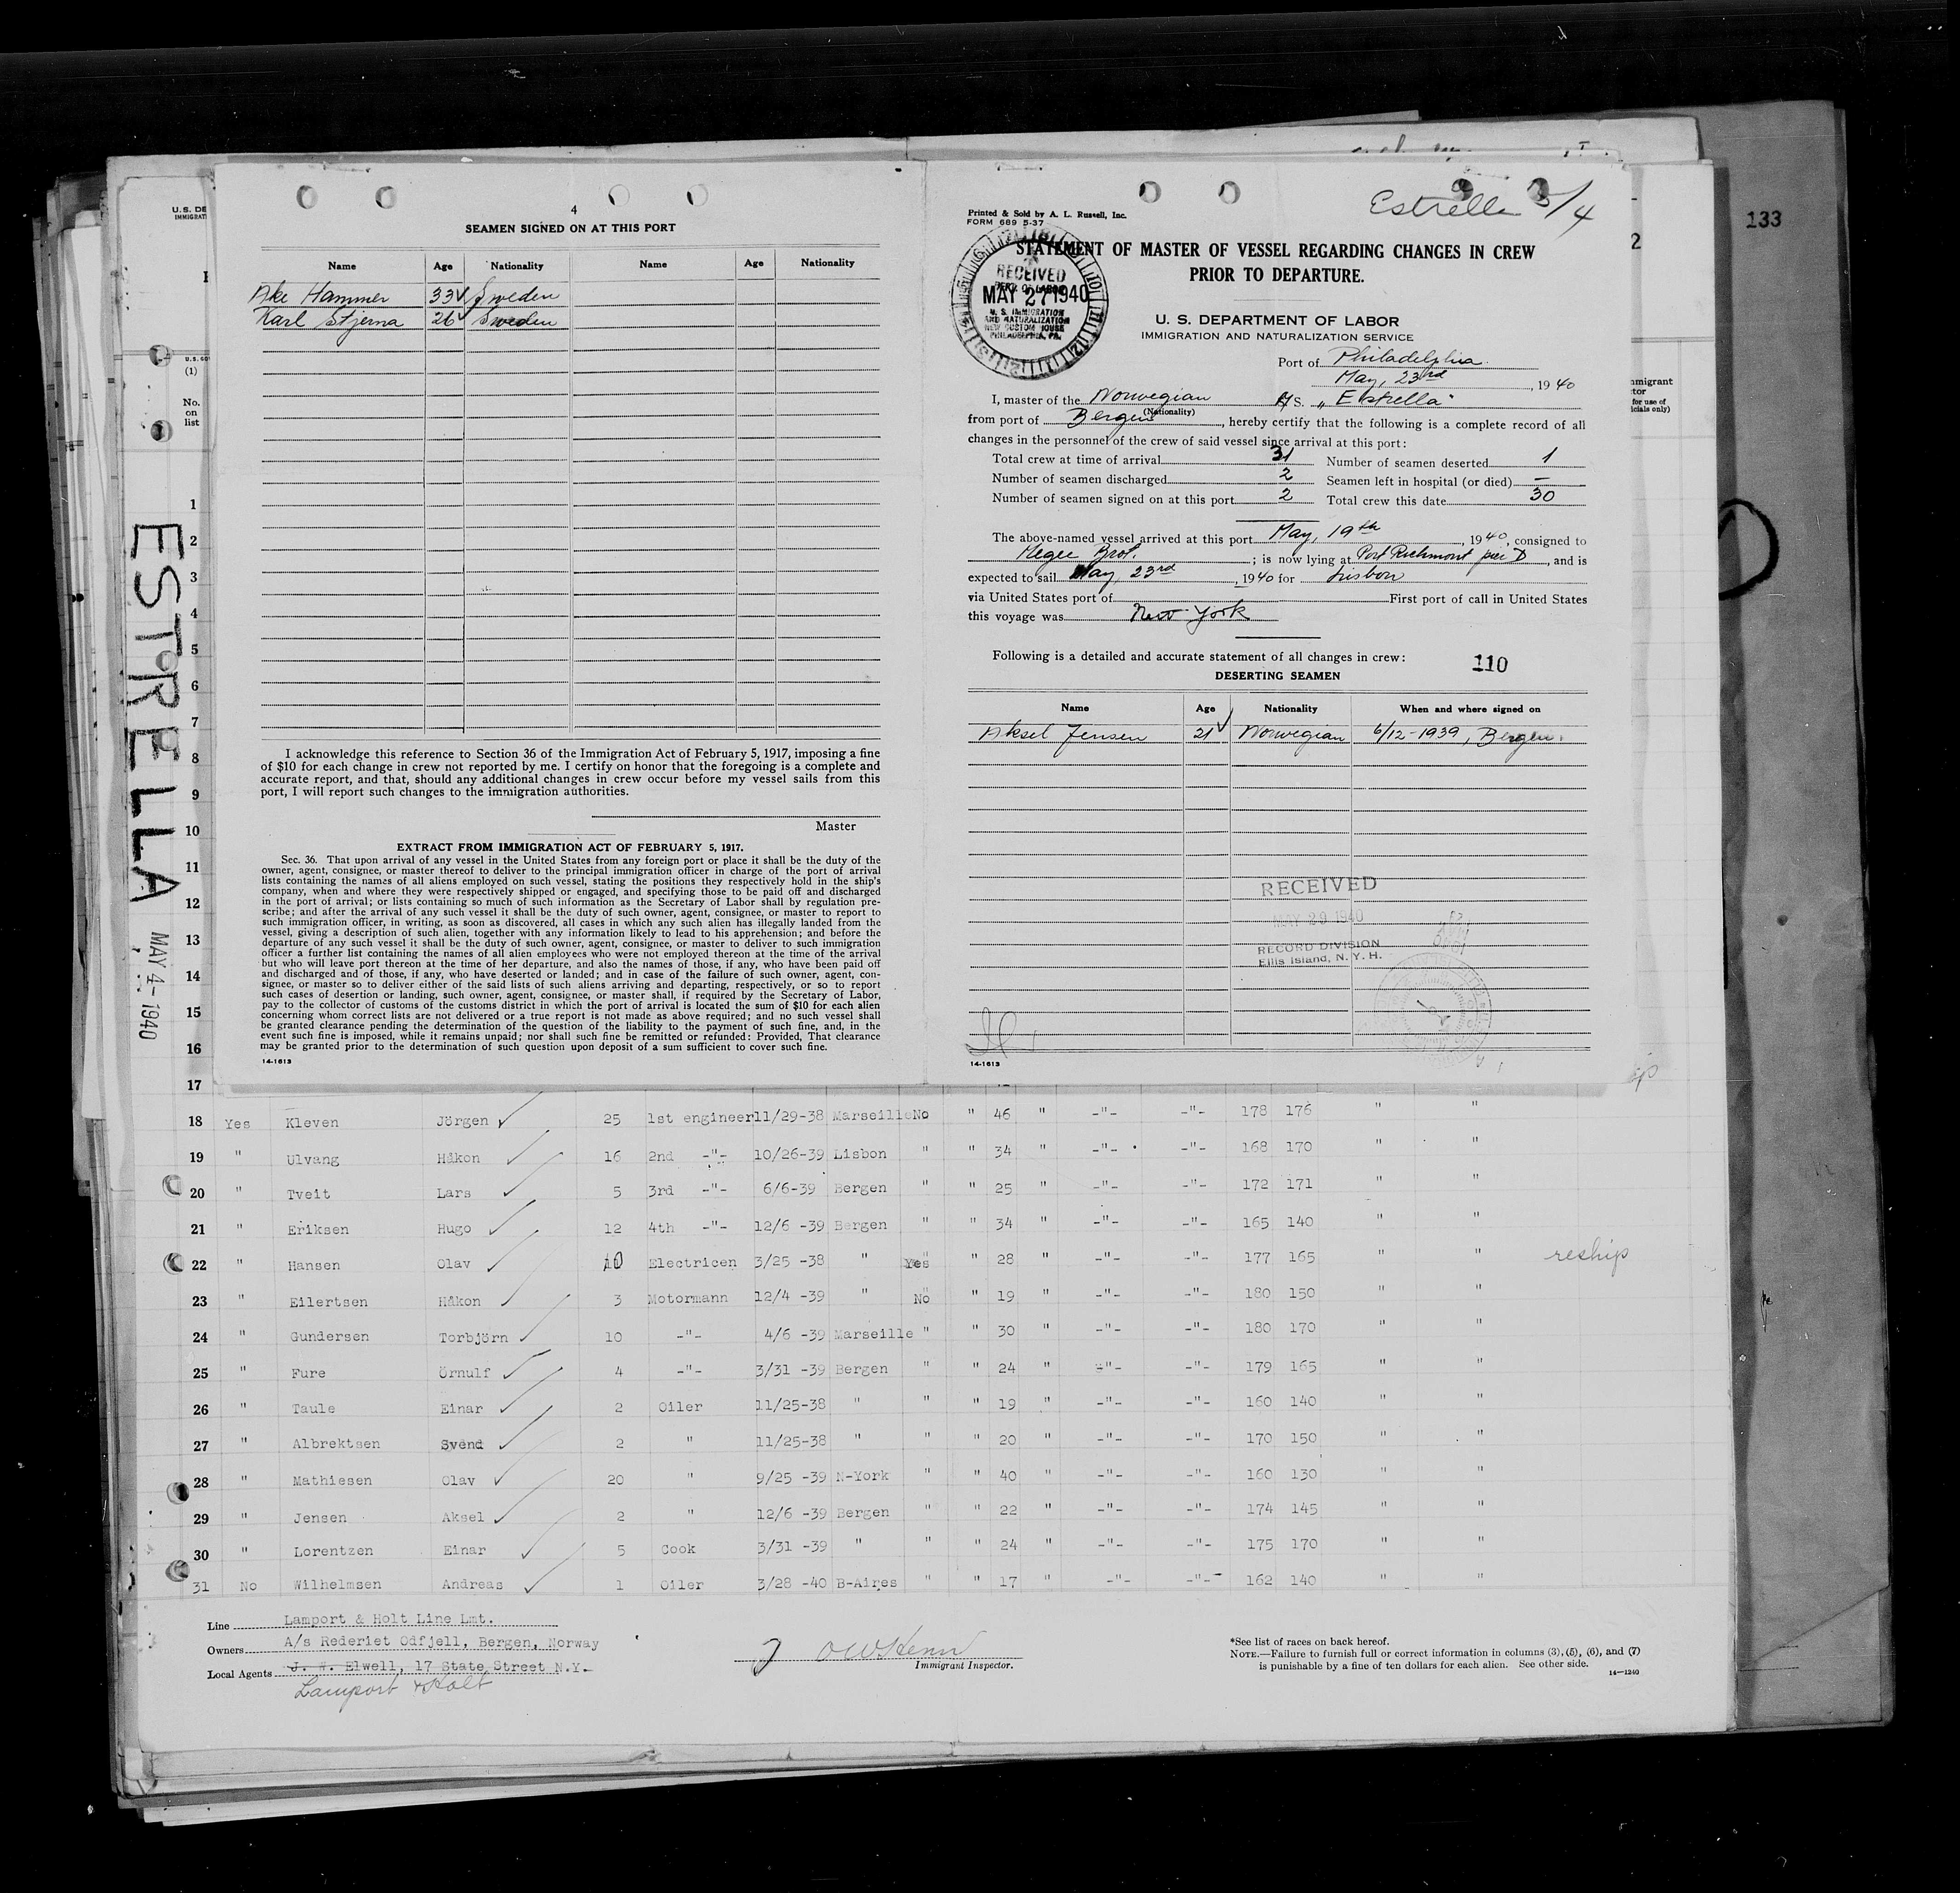 133
2
U.S. DE
IMMIGRAT
4
SEAMEN SIGNED ON AT THIS PORT
Name Age Nationality Name Age Nationality
Ake Hammer 33 Sweden
Karl Stjerna 26 Sweden
I acknowledge this reference to Section 36 of the Immigration Act of February 5, 1917, imposing a fine
of $10 for each change in crew not reported by me. I certify on honor that the foregoing is a complete and
accurate report, and that, should any additional changes in crew occur before my vessel sails from this
port, I will report such changes to the immigration authorities.
Master
EXTRACT FROM IMMIGRATION ACT OF FEBRUARY 5, 1917.
Sec. 36. That upon arrival of any vessel in the United States from any foreign port or place it shall be the duty of the
owner, agent, consignee, or master thereof to deliver to the principal immigration officer in charge of the port of arrival
lists containing the names of all aliens employed on such vessel, stating the positions they respectively hold in the ship's
company, when and where they were respectively shipped or engaged, and specifying those to be paid off and discharged
in the port of arrival; or lists containing so much of such information as the Secretary of Labor shall by regulation pre-
scribe; and after the arrival of any such vessel it shall be the duty of such owner, agent, consignee, or master to report to
such immigration officer, in writing, as soon as discovered, all cases in which any such alien has illegally landed from the
vessel, giving a description of such alien, together with any information likely to lead to his apprehension; and before the
departure of any such vessel it shall be the duty of such owner, agent, consignee, or master to deliver to such immigration
officer a further list containing the names of all alien employees who were not employed thereon at the time of the arrival
but who will leave port thereon at the time of her departure, and also the names of those, if any, who have been paid off
and discharged and of those, if any, who have deserted or landed; and in case of the failure of such owner, agent, con-
signee, or master so to deliver either of the said lists of such aliens arriving and departing, respectively, or so to report
such cases of desertion or landing, such owner, agent, consignee, or master shall, if required by the Secretary of Labor,
pay to the collector of customs of the customs district in which the port of arrival is located the sum of $10 for each alien
concerning whom correct lists are not delivered or a true report is not made as above required; and no such vessel shall
be granted clearance pending the determination of the question of the liability to the payment of such fine, and, in the
event such fine is imposed, while it remains unpaid; nor shall such fine be remitted or refunded: Provided, That clearance
may be granted prior to the determination of such question upon deposit of a sum sufficient to cover such fine.
14-1613
Estrella 3/4
Printed & Sold by A. L. Russell, Inc.
FORM 689 5-37
STATEMENT OF MASTER OF VESSEL REGARDING CHANGES IN CREW
PRIOR TO DEPARTURE.
RECEIVED
DEPT. OF LABOR
MAY 27 1940
U. S. IMMIGRATION
AND NATURALIZATION
NEW CUSTOM HOUSE
PHILADELPHIA, PA.
U. S. DEPARTMENT OF LABOR
IMMIGRATION AND NATURALIZATION SERVICE
Port of Philadelphia
May, 23rd, 1940
I, master of the Norwegian M/S. „Estrella"
(Nationality)
from port of Bergen, hereby certify that the following is a complete record of all
changes in the personnel of the crew of said vessel since arrival at this port:
Total crew at time of arrival 31 Number of seamen deserted 1
Number of seamen discharged 2 Seamen left in hospital (or died) —
Number of seamen signed on at this port 2 Total crew this date 30
The above-named vessel arrived at this port May, 19th, 1940, consigned to
Megee Brot. ; is now lying at Port Richmont pier D, and is
expected to sail May 23rd, 1940 for Lisbon
via United States port of First port of call in United States
this voyage was New-York
Following is a detailed and accurate statement of all changes in crew:
110
DESERTING SEAMEN
Name Age Nationality When and where signed on
Aksel Jensen 21 Norwegian 6/12-1939, Bergen.
RECEIVED
MAY 29 1940
RECORD DIVISION
Ellis Island, N. Y. H.
14-1613
U.S. GO
(1)
No.
on
list
mmigrant
tor
for use of
icials only)
ESTRELLA MAY 4-1940
1
2
3
4
5
6
7
8
9
10
11
12
13
14
15
16
17
18 Yes Kleven Jörgen 25 1st engineer 11/29-38 Marseille No " 46 " -"- -"- 178 176 " "
19 " Ulvang Håkon 16 2nd -"- 10/26-39 Lisbon " " 34 " -"- -"- 168 170 " "
20 " Tveit Lars 5 3rd -"- 6/6-39 Bergen " " 25 " -"- -"- 172 171 " "
21 " Eriksen Hugo 12 4th -"- 12/6 -39 Bergen " " 34 " -"- -"- 165 140 " "
22 " Hansen Olav 10 Electricen 3/25 -38 " Yes " 28 " -"- -"- 177 165 " " reship
23 " Eilertsen Håkon 3 Motormann 12/4 -39 " No " 19 " -"- -"- 180 150 " "
24 " Gundersen Torbjörn 10 -"- 4/6 -39 Marseille " " 30 " -"- -"- 180 170 " "
25 " Fure Örnulf 4 -"- 3/31 -39 Bergen " " 24 " -"- -"- 179 165 " "
26 " Taule Einar 2 Oiler 11/25-38 " " " 19 " -"- -"- 160 140 " "
27 " Albrektsen Svend 2 " 11/25-38 " " " 20 " -"- -"- 170 150 " "
28 " Mathiesen Olav 20 " 9/25 -39 N-York " " 40 " -"- -"- 160 130 " "
29 " Jensen Aksel 2 " 12/6 -39 Bergen " " 22 " -"- -"- 174 145 " "
30 " Lorentzen Einar 5 Cook 3/31 -39 " " " 24 " -"- -"- 175 170 " "
31 No Wilhelmsen Andreas 1 Oiler 3/28 -40 B-Aires " " 17 " -"- -"- 162 140 " "
Line Lamport & Holt Line Lmt.
Owners A/s Rederiet Odfjell, Bergen, Norway
Local Agents J. W. Elwell, 17 State Street N.Y.
Lamport & Holt
Immigrant Inspector.
*See list of races on back hereof.
NOTE.—Failure to furnish full or correct information in columns (3), (5), (6), and (7)
is punishable by a fine of ten dollars for each alien. See other side.
14—1240